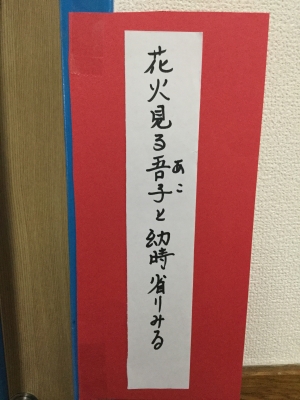 花火見る吾子と幼時省りみる
あこ